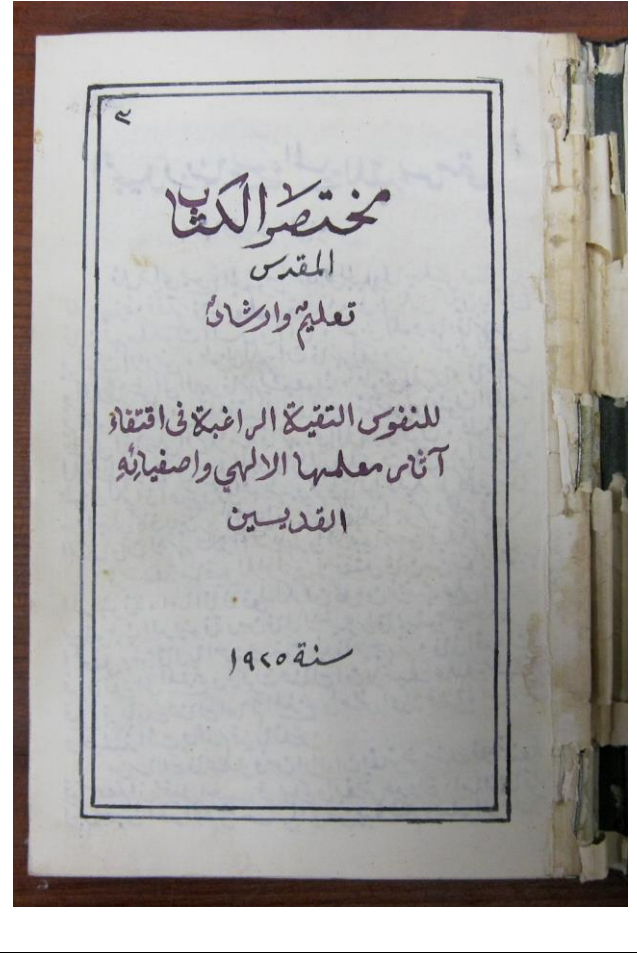 ٣
مختصر الكتاب
المقدس
تعليمٌ وارشادٌ
للنفوس التقية الراغبة في اقتفاء
آثار معلمها الالهي واصفيائهِ
القديسين
سنة ١٩٢٥